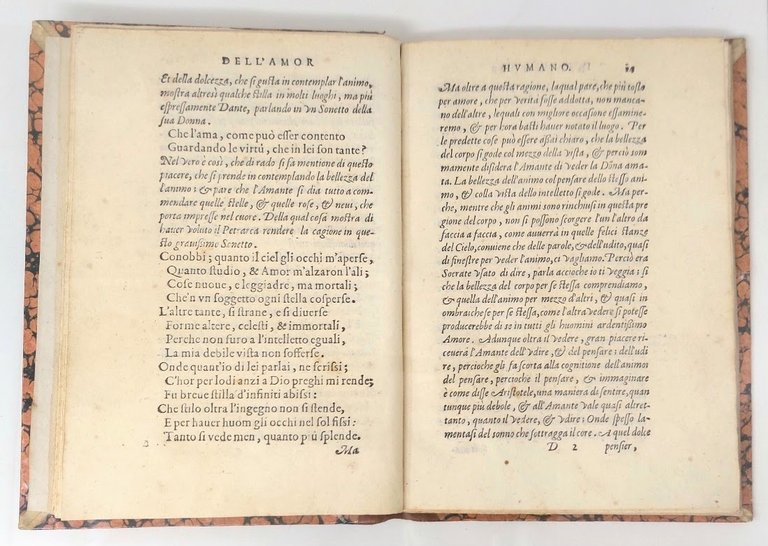 DELL'AMOR
Et della dolcezza, che si gusta in contemplar l'animo,
mostra altresì qualche stilla in molti luoghi, ma più
espressamente Dante, parlando in vn Sonetto della
sua Donna.
Che l'ama, come può esser contento
Guardando le virtù, che in lei son tante?
Nel vero è così, che di rado si fa mentione di questo
piacere, che si prende in contemplando la bellezza del
l'animo: & pare che l'Amante si dia tutto a com-
mendare quelle stelle, & quelle rose, & neui, che
porta impresse nel cuore. Della qual cosa mostra di
hauer voluto il Petrarca rendere la cagione in que-
sto grauissimo Sonetto.
Conobbi; quanto il ciel gli occhi m'aperse,
Quanto studio, & Amor m'alzaron l'ali;
Cose nuoue, e leggiadre, ma mortali;
Che'n vn soggetto ogni stella cosperse.
L'altre tante, si strane, e si diuerse
Forme altere, celesti, & immortali,
Perche non furo a l'intelletto eguali,
La mia debile vista non sofferse.
Onde quant'io di lei parlai, ne scrissi;
C'hor per lodi anzi a Dio preghi mi rende;
Fu breue stilla d'infiniti abissi:
Che stilo oltra l'ingegno non si stende,
E per hauer huom gli occhi nel sol fissi:
Tanto si vede men, quanto più splende.
2
Ma
HVMANO.
Ma oltre a questa ragione, la qual pare, che più tosto
per amore, che per verita fosse addotta, non manca-
no dell'altre, lequali con migliore occasione essamine-
remo, & per hora basti hauer notato il luogo. Per
le predette cose può essere assai chiaro, che la bellezza
del corpo si gode col mezzo della vista, & perciò som
mamente disidera l'Amante di veder la Dōna ama-
ta. La bellezza dell'animo col pensare dello stesso ani
mo, & colla vista dello intelletto si gode. Ma per-
che, mentre che gli animi son rinchiusi in questa pri
gione del corpo, non si possono scorgere l'un l'altro da
faccia a faccia, come auuerrà in quelle felici stanze
del Cielo, conuiene che delle parole, & dell'udito, quasi
di finestre per veder l'animo, ci vagliamo. Perciò era
Socrate vsato di dire, parla accioche io ti veggia: si
che la bellezza del corpo per se stessa comprendiamo,
& quella dell'animo per mezzo d'altri, & quasi in
ombra: che se per se stessa, come l'altra vedere si potesse
producerebbe di se in tutti gli huomini ardentissimo
Amore. Adunque oltra il vedere, gran piacere ri-
ceuerà l'Amante dell'vdire, & del pensare: dell'udi
re, percioche gli fa scorta alla cognitione dell'animo:
del pensare, percioche il pensare, & immaginare
è come disse Aristotele, una maniera di sentire, quan
tunque più debole, & all'Amante vale quasi altret-
tanto, quanto il vedere, & vdire: Onde spesso la-
mentasi del sonno che sottragga il core. A quel dolce
D 2 pensier,